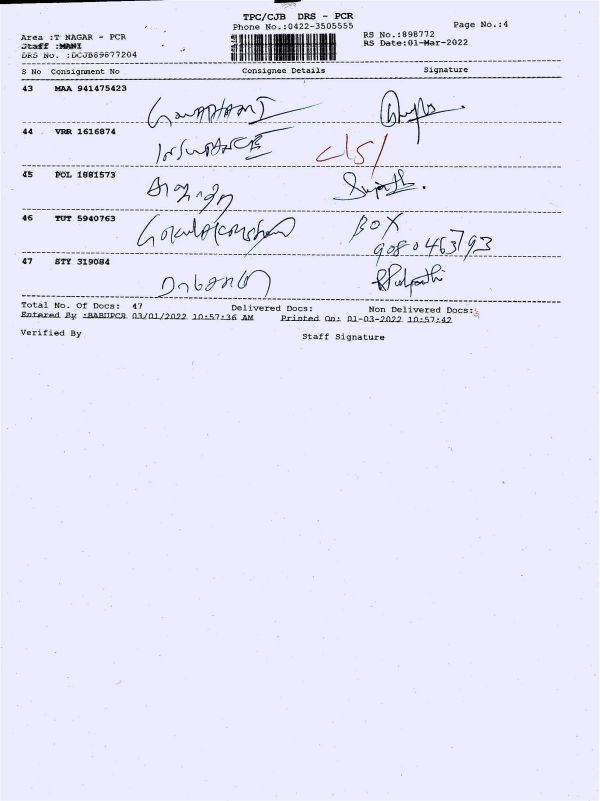 TPC/CJB DRS - PCR
Phone No.:0422-3505555
Page No.:4
Area :T NAGAR - PCR
RS No.:898772
Staff :MANI
RS Date:01-Mar-2022
DRS No. :DCJB89877204
S No Consignment No Consignee Details Signature
43 MAA 941475423
44 VRR 1616874
INSURANCE C/S/
45 POL 1881573
46 TUT 5940763
Gokulakrishnan BOX
9080463793
47 STY 319084
Total No. Of Docs: 47 Delivered Docs: Non Delivered Docs:
Entered By :BABUPCR 03/01/2022 10:57:36 AM Printed On: 01-03-2022 10:57:42
Verified By Staff Signature